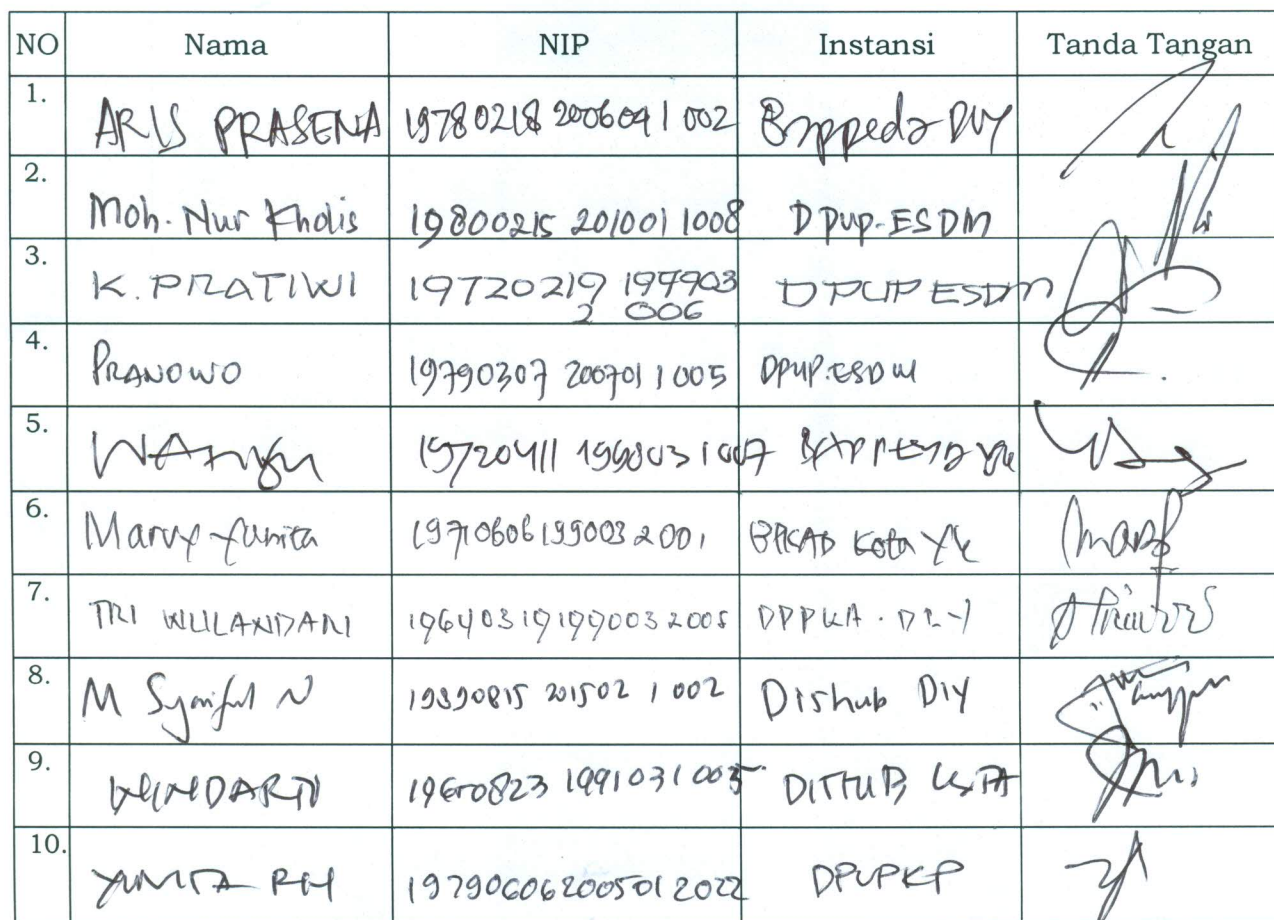 NO Nama NIP Instansi Tanda Tangan
1. ARIS PRASENA 19780218 200604 1 002 Bappeda DIY
2. Moh. Nur Kholis 19800215 201001 1008 DPUP-ESDM
3. K. PRATIWI 19720219 199903 DPUP ESDM
2 006
4. PRANOWO 19790307 200701 1 005 DPUP.ESDM
5. 19720411 1 007
6. Yunita 19710606 199003 2 001 BPKAD Kota Yk
7. TRI WULANDARI 19640319 199003 2005 DPPKA. DIY
8. M Syaiful N 19890815 201502 1 002 Dishub DIY
9. WINDARTO 1991031 005
10. YUNITA RH 19790606 200501 2022 DPUPKP